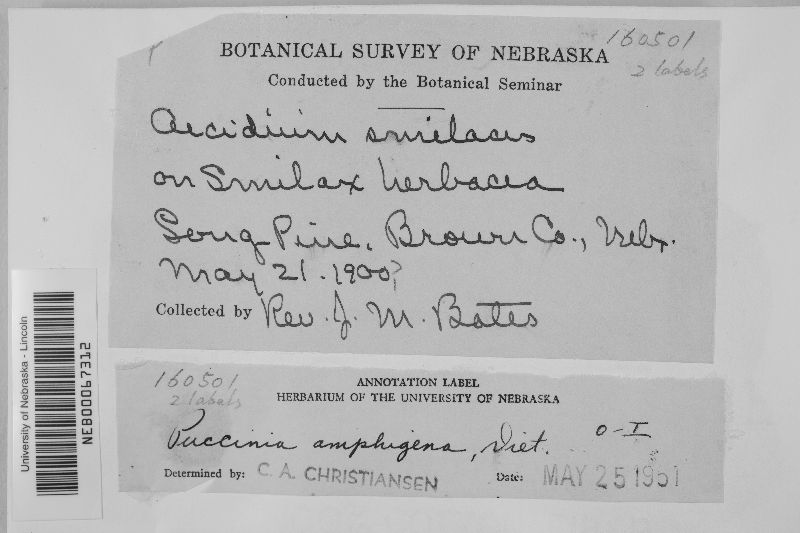 160501
BOTANICAL SURVEY OF NEBRASKA
2 labels
Conducted by the Botanical Seminar
Aecidium smilacis
on Smilax herbacea
Long Pine, Brown Co., Nebr.
May 21. 1900?
Collected by Rev. J. M. Bates
University of Nebraska - Lincoln
NEB00067312
160501
2 labels
ANNOTATION LABEL
HERBARIUM OF THE UNIVERSITY OF NEBRASKA
Puccinia amphigena, Diet. O-I
Determined by: C. A. CHRISTIANSEN Date: MAY 25 1951